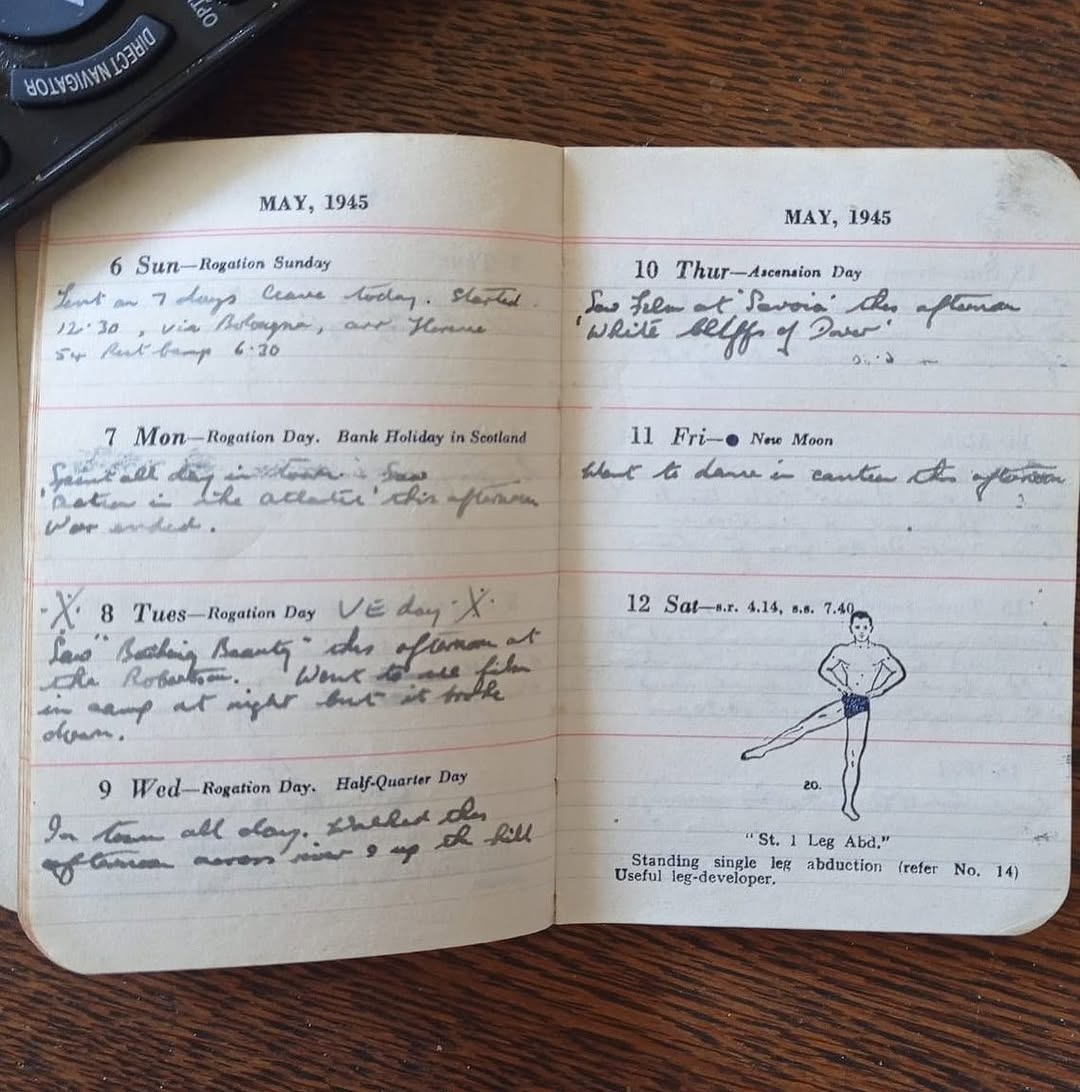 DIRECT NAVIGATOR
OPT
MAY, 1945
6 Sun—Rogation Sunday
on 7 days leave today. Started
12.30, via Bologna, arr. Florence
54 Rest Camp 6.30
7 Mon—Rogation Day. Bank Holiday in Scotland
Spent all day in town. Saw
'Action in the Atlantic' this afternoon
War ended.
8 Tues—Rogation Day VE day
Saw "Bathing Beauty" this afternoon at
the Robertson. Went to see film
in camp at night but it broke
down.
9 Wed—Rogation Day. Half-Quarter Day
In town all day. Walked this
afternoon across river & up the hill
MAY, 1945
10 Thur—Ascension Day
Saw Film at 'Savoia' this afternoon
'White Cliffs of Dover'
11 Fri—● New Moon
Went to dance in canteen this afternoon
12 Sat—s.r. 4.14, s.s. 7.40
20.
"St. 1 Leg Abd."
Standing single leg abduction (refer No. 14)
Useful leg-developer.